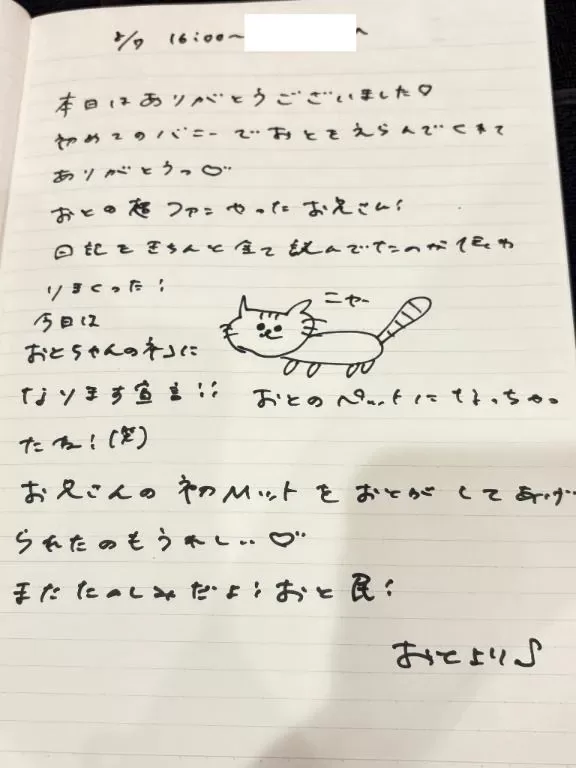 2/7 16:00~ へ
本日はありがとうございました♡
初めてのバニーでおとをえらんでくれて
ありがとうっ♡
おとの超ファンやったお兄さん!
日記をきちんと全て読んでたのが伝わ
りまくった!
ニャー
今日は
おとちゃんのネコに
なります宣言!! おとのペットになっちゃっ
たね!(笑)
お兄さんの初Mットをおとがしてあげ
られたのもうれしい♡
またたのしみだよ!おと民!
おとより♪